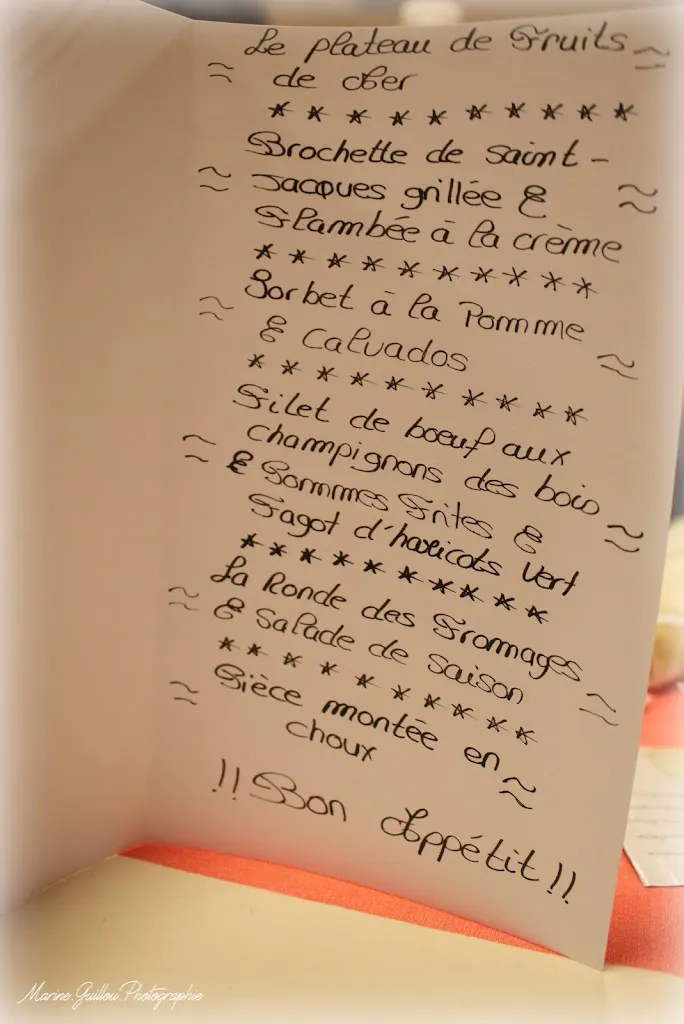 Le plateau de Fruits
≈ de Mer ≈
* * * * * * * * * *
Brochette de Saint-
≈ Jacques grillée & ≈
Flambée à la crème
* * * * * * * * * *
Sorbet à la Pomme
≈ & Calvados ≈
* * * * * * * * * *
Filet de boeuf aux
champignons des bois
≈ & Pommes Frites & ≈
Fagot d'haricots Vert
* * * * * * * * * *
La Ronde des Fromages
≈ & Salade de saison ≈
* * * * * * * * * *
≈ Pièce montée en
choux ≈
!! Bon Appétit !!
Marine.Guillou.Photographie